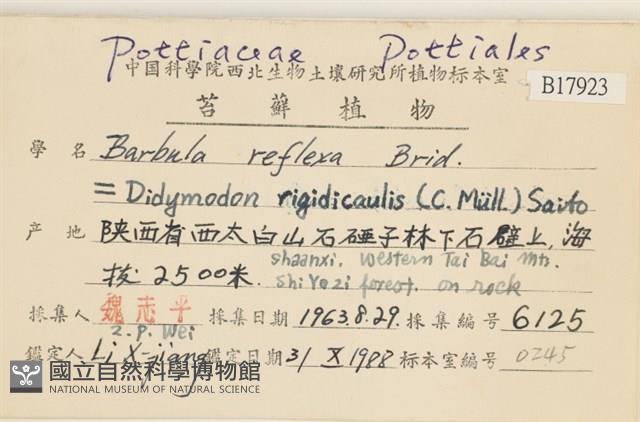 Pottiaceae Pottiales
中国科學院西北生物土壤研究所植物标本室
B17923
苔蘚植物
學名 Barbula reflexa Brid.
= Didymodon rigidicaulis (C. Müll.) Saito
产地 陕西省西太白山石硾子林下石壁上,海
shaanxi. Western Tai Bai Mts.
拔 2500米. shi Yazi forest. on rock
採集人 魏志平 採集日期 1963.8.29. 採集編号 6125
Z. P. Wei
鑑定人 Li X-jiang 鑑定日期 31 X 1988 标本室編号 0245
國立自然科學博物館
NATIONAL MUSEUM OF NATURAL SCIENCE